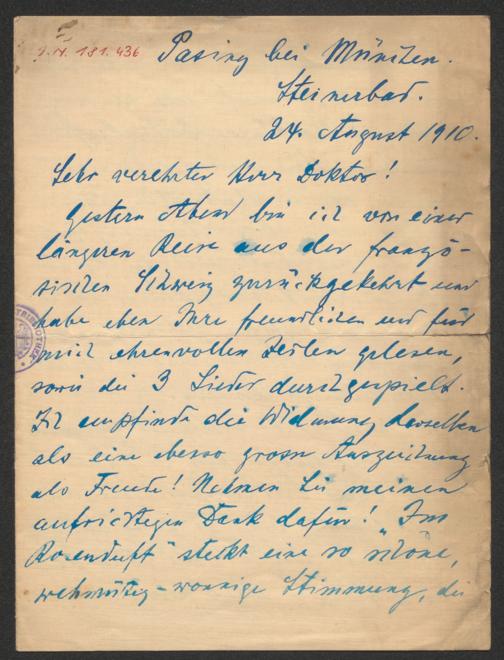 I.N. 181.436
Pasing bei München.
Steinerbad.
24. August 1910.
Sehr verehrter Herr Doktor!
Gestern Abend bin ich von einer
längeren Reise aus der franzö-
sischen Schweiz zurückgekehrt und
habe eben Ihre freundlichen und für
mich ehrenvollen Zeilen gelesen,
sowie die 3 Lieder durchgespielt.
Ich empfinde die Widmung derselben
als eine ebenso grosse Auszeichnung
als Freude! Nehmen Sie meinen
aufrichtigen Dank dafür! „Im
Rosenduft" steckt eine so schöne,
wehmütig-wonnige Stimmung, die